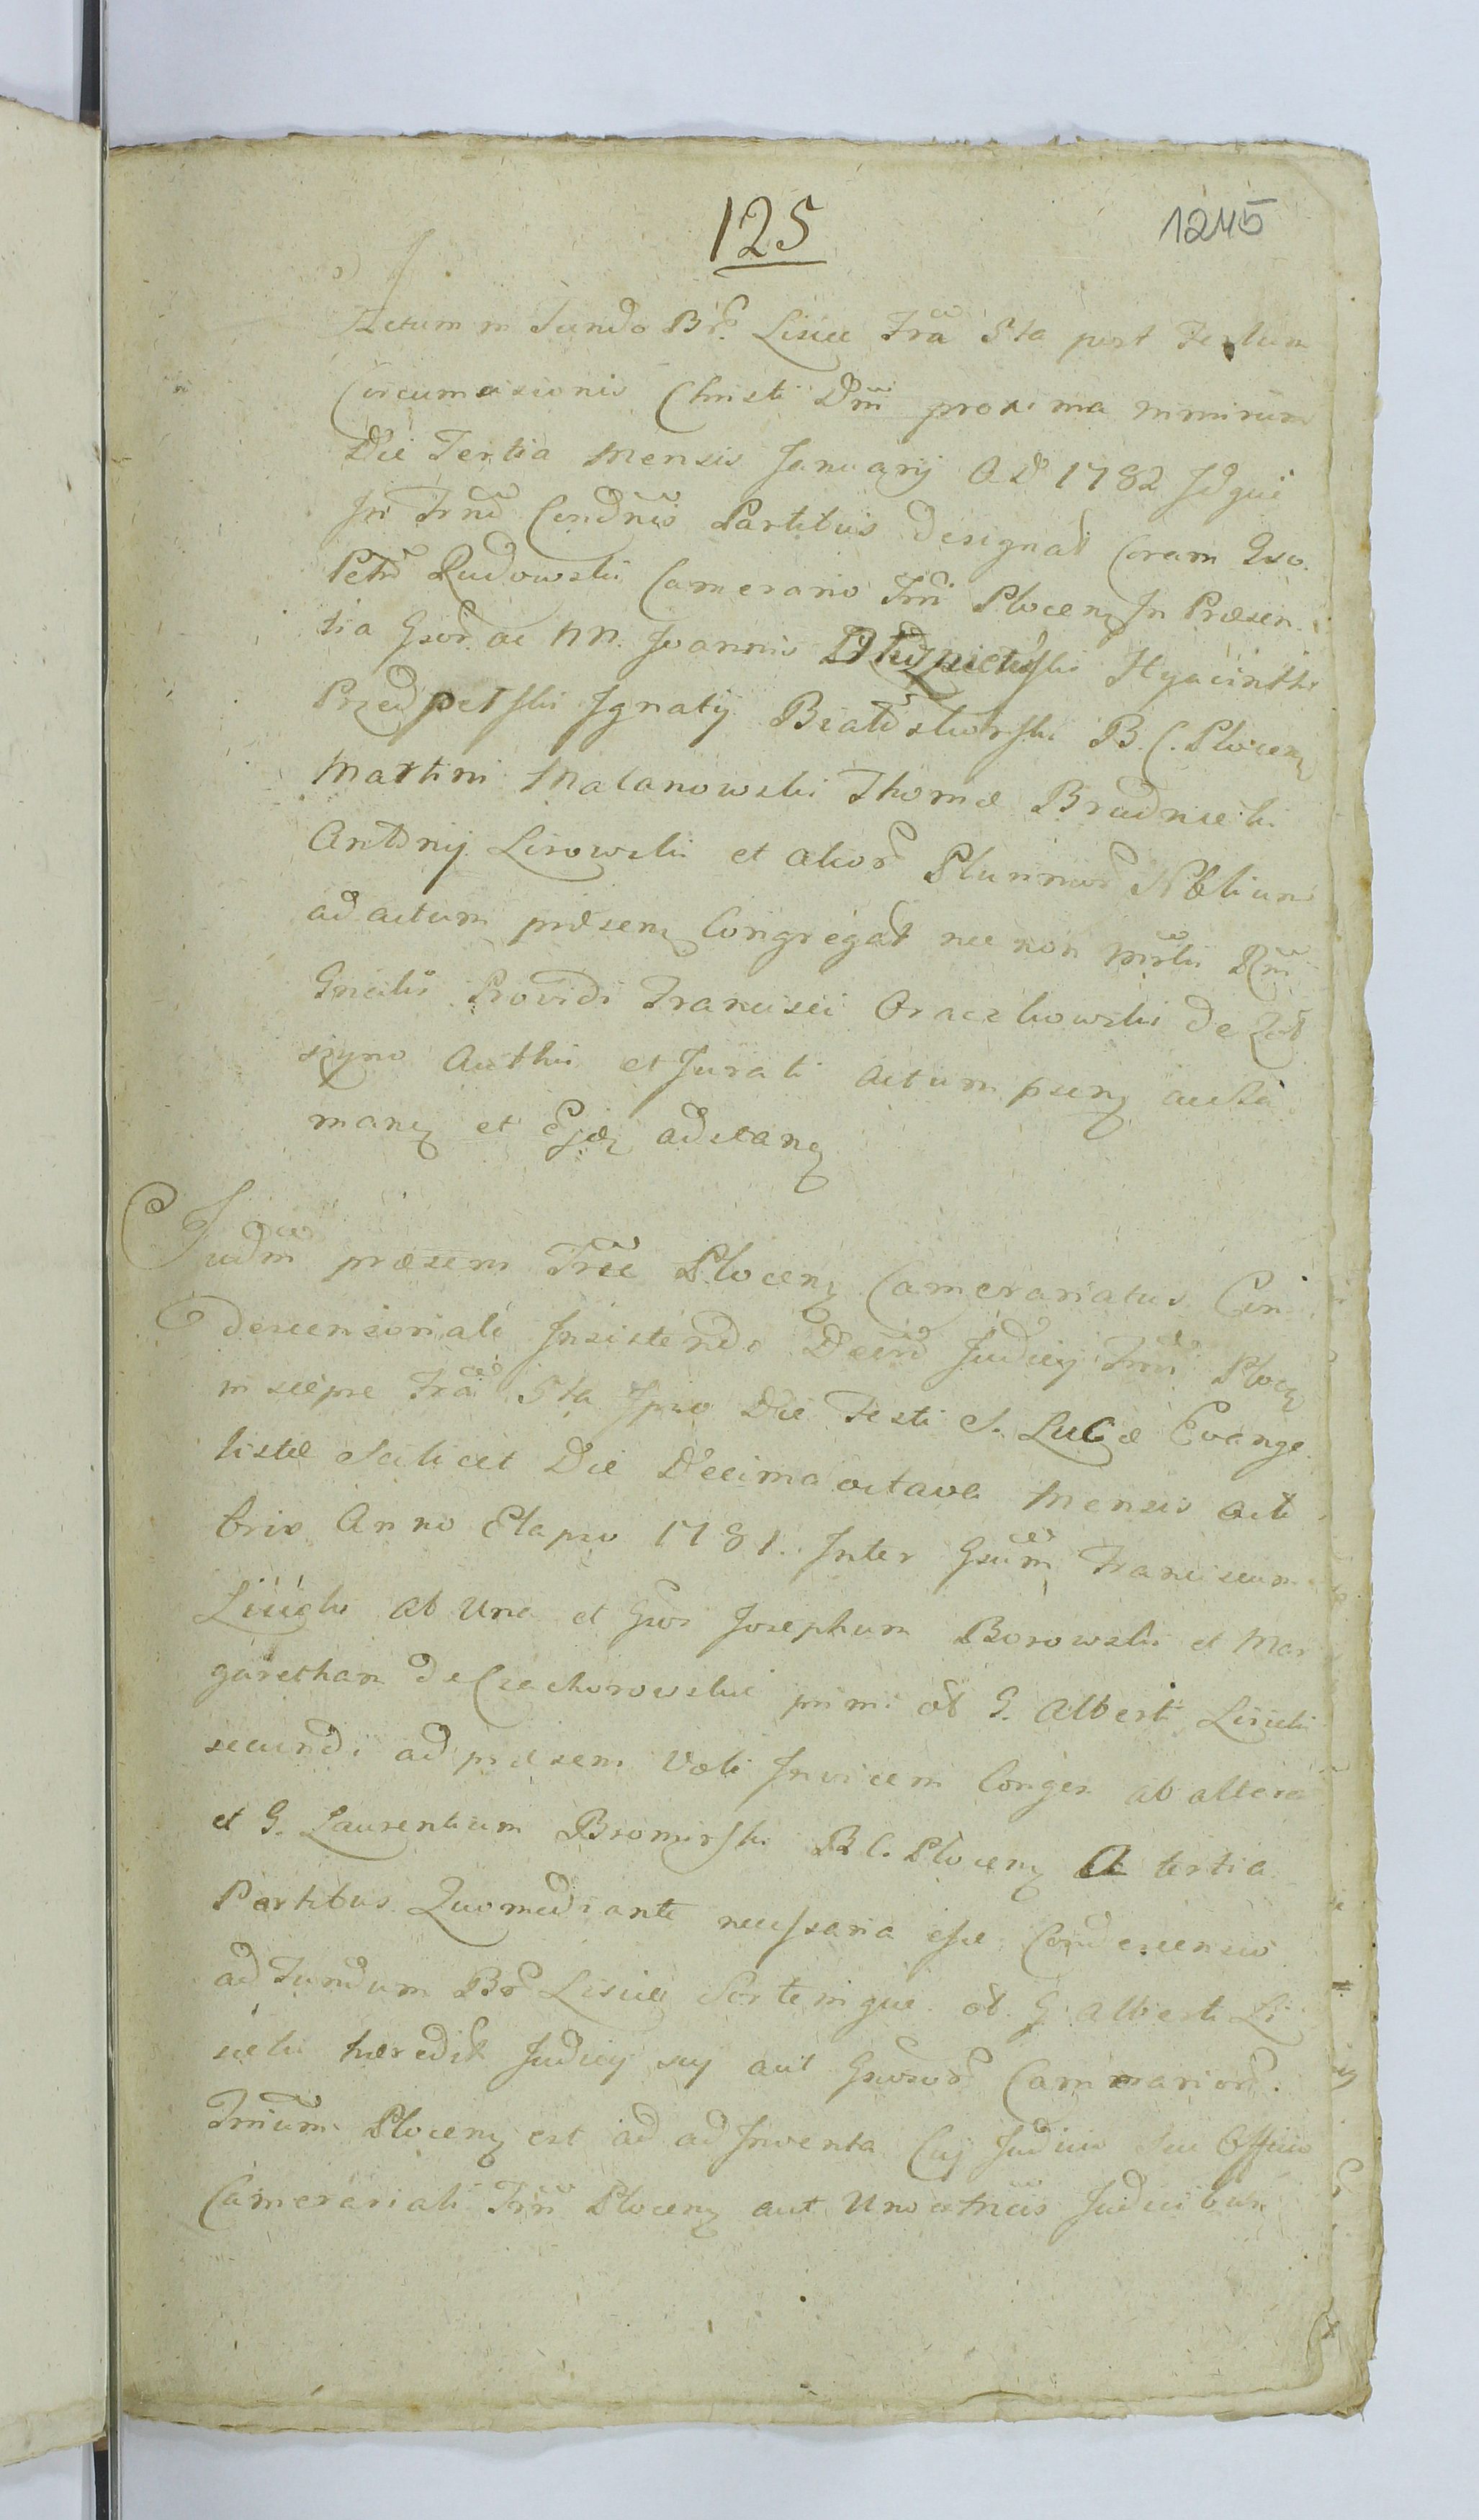 125
1245
Actum in Fundo Br. Lisice Fra 5ta post Festum
Circumcisionis Christi Dni proxima nimirum
Die Tertia Mensis Januarij A D 1782 Idque
In Trno Condnis Partibus designat Coram Gso
Petro Rudowski Camerario Trri Plocen In Præsen
tia Gsor. ac NN. Joannis Hyacinthi
Przedpełski Ignatij Białoskorski B. C. Plocen
Martini Malanowski Thomæ Brudnicki
Antonij Lisowski et alior Plurimor Nobilium
ad actum præsen Congregat nec non Mrlis Rni
Gnalis Providi Francisci Oraczkowski de
szyno Authci et Jurati actum psens aucla
man et Ejdz adstan
Judm præsens Trræ Plocen Camerariatus Con
descensoriale Insistendo Decreto Judicij Trri Plocen
in sæpre Fra 5ta Ipso Die Festi S. Lucæ Evange
listæ Scilicet Die Decima octava Mensis octo
bris Anno Elapso 1781. Inter Gsum Franciscum
Lisicki ab Una et Gsos Josephum Borowski et Mar
garetham de Czachorowskie primi ol G. Alberti Lisicki
secundi ad præsens Voti Invicem Conges ab altera
et G. Laurentium Bromirski B C. Plocen A tertia
Partibus Quo mediante necessaria esse Condescensio
ad Fundum Br Lisice Sortemque ol. G. Alberti Li
sicki hæredit Judicij sui aut Gsoror Camerarior.
Trrium Plocen est ad adInventa Cuj Judicio Seu Officio
Camerariali Trri Plocen aut Judicibus